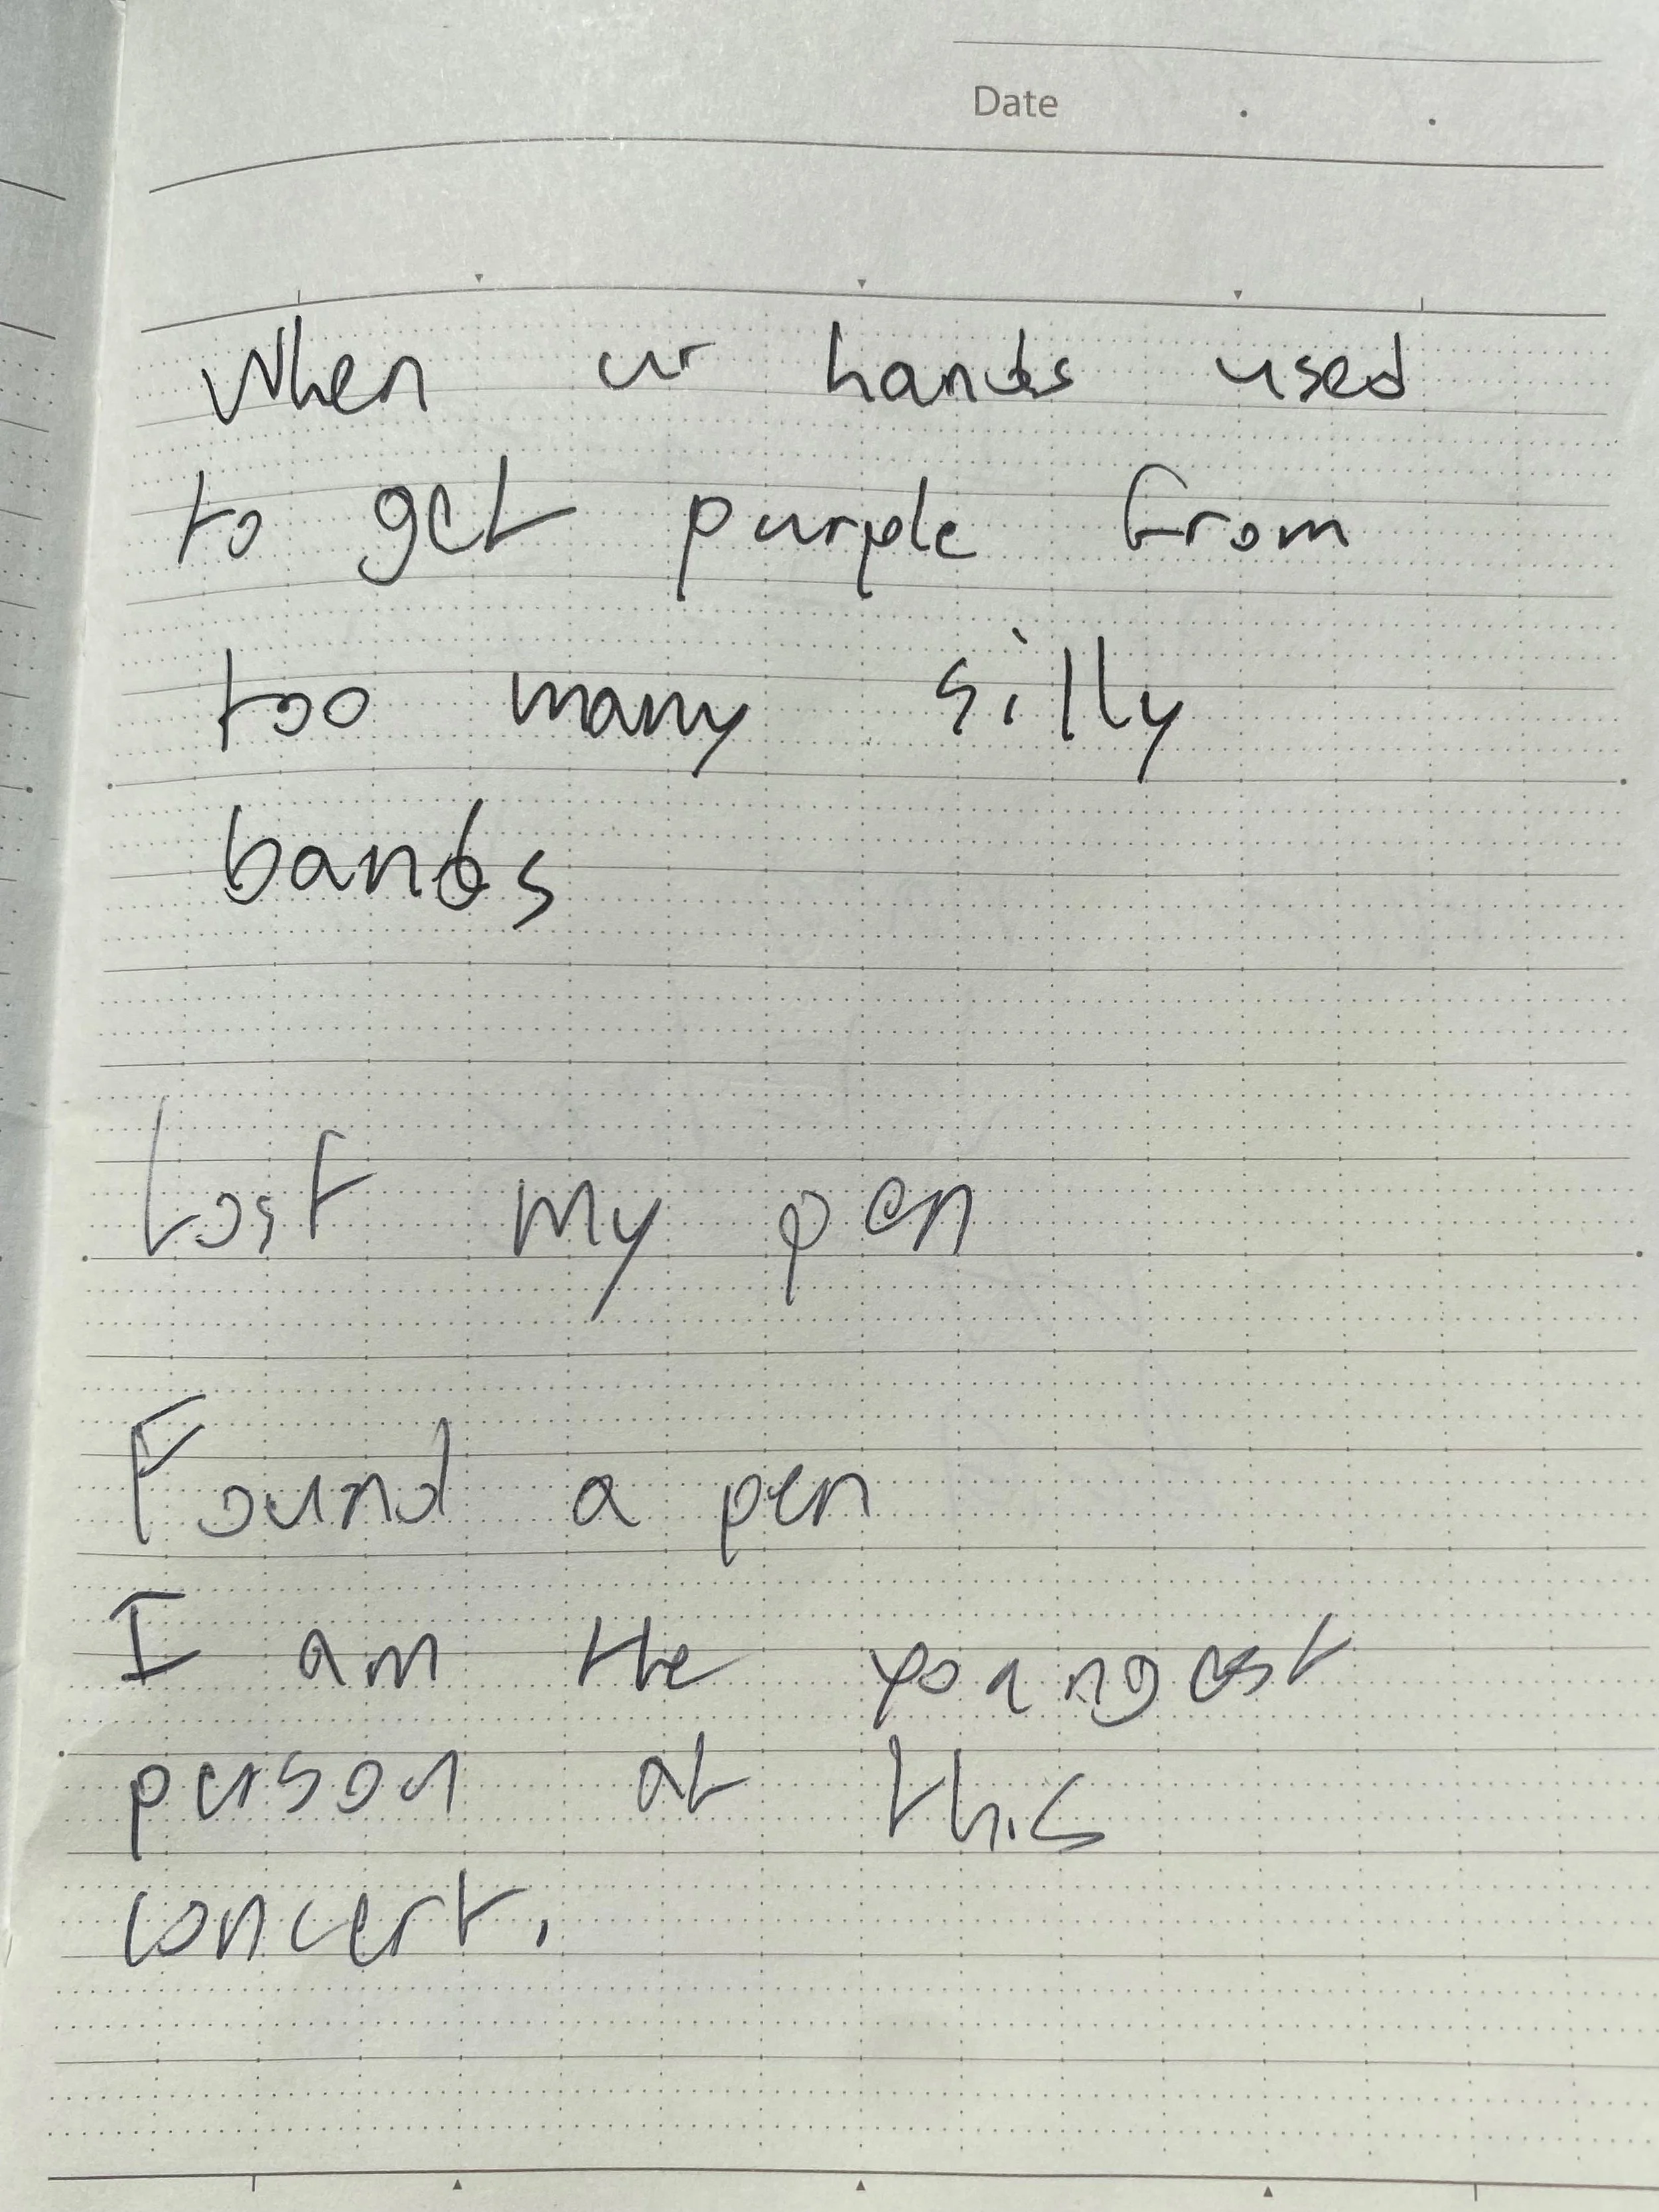 Date . .
When ur hands used
to get purple from
too many silly
bands
Lost my pen
Found a pen
I am the youngest
person at this
concert.